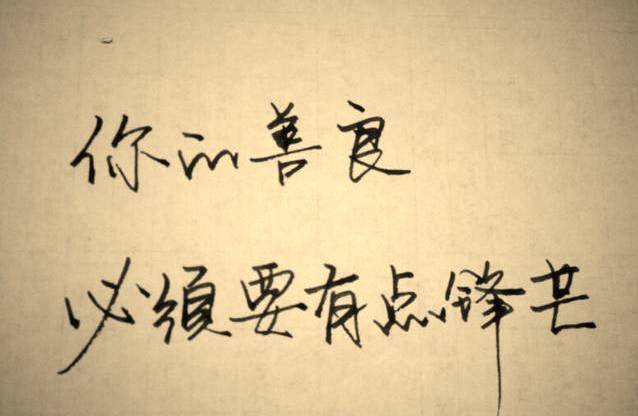 你的善良
必須要有点鋒芒